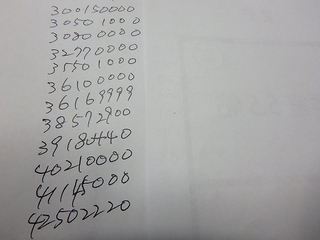 300150000
30501000
30800000
32770000
35501000
36100000
36169999
38572900
39180440
40210000
41145000
42502220